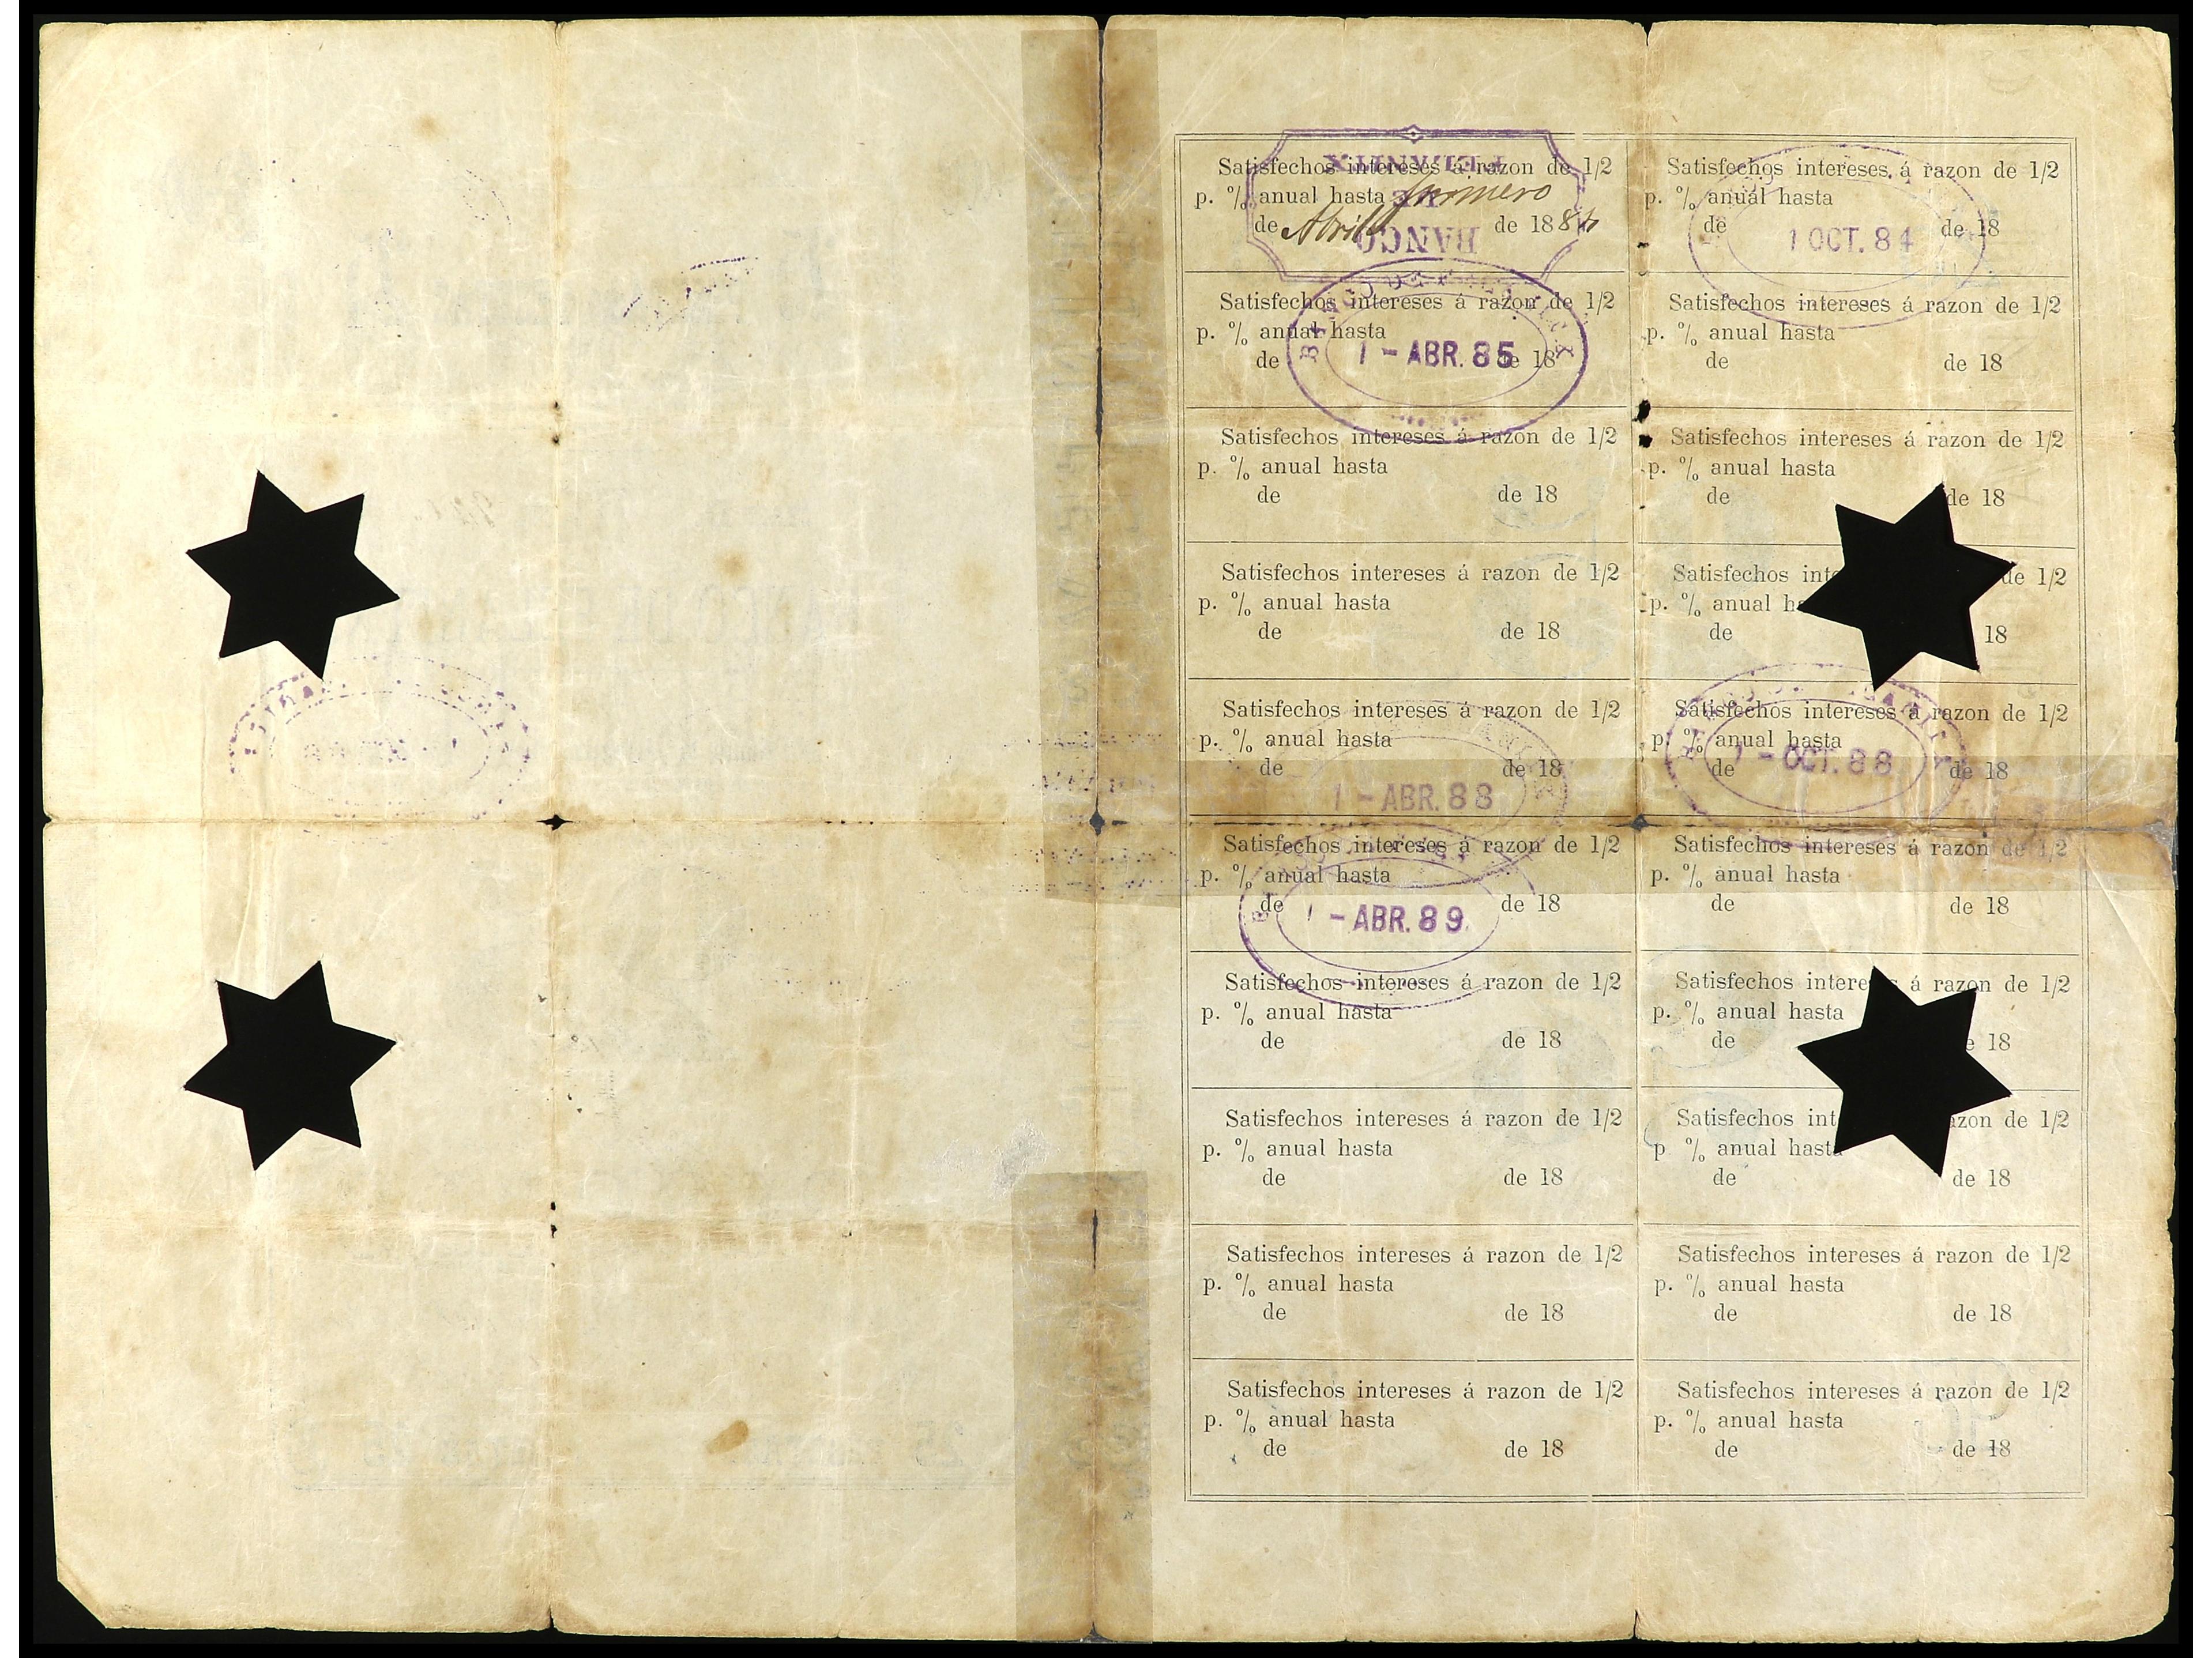 Satisfechos intereses á razon de 1/2
p. % anual hasta primero
de Abril de 1884
BANCO
DE
FELANITX
Satisfechos intereses á razon de 1/2
p. % anual hasta
de de 18
1 OCT. 84
Satisfechos intereses á razon de 1/2
p. % anual hasta
de de 18
1 - ABR. 85
Satisfechos intereses á razon de 1/2
p. % anual hasta
de de 18
Satisfechos intereses á razon de 1/2
p. % anual hasta
de de 18
Satisfechos intereses á razon de 1/2
p. % anual hasta
de de 18
Satisfechos intereses á razon de 1/2
p. % anual hasta
de de 18
Satisfechos de 1/2
p. % anual
de 18
Satisfechos intereses á razon de 1/2
p. % anual hasta
de de 18
1 - ABR. 88
Satisfechos intereses á razon de 1/2
p. % anual hasta
de de 18
1 - OCT. 88
Satisfechos intereses á razon de 1/2
p. % anual hasta
de de 18
1 - ABR. 89
Satisfechos intereses á razon de 1/2
p. % anual hasta
de de 18
Satisfechos intereses á razon de 1/2
p. % anual hasta
de de 18
Satisfechos á razon de 1/2
p. % anual hasta
de 18
Satisfechos intereses á razon de 1/2
p. % anual hasta
de de 18
Satisfechos de 1/2
p. % anual
de de 18
Satisfechos intereses á razon de 1/2
p. % anual hasta
de de 18
Satisfechos intereses á razon de 1/2
p. % anual hasta
de de 18
Satisfechos intereses á razon de 1/2
p. % anual hasta
de de 18
Satisfechos intereses á razon de 1/2
p. % anual hasta
de de 18